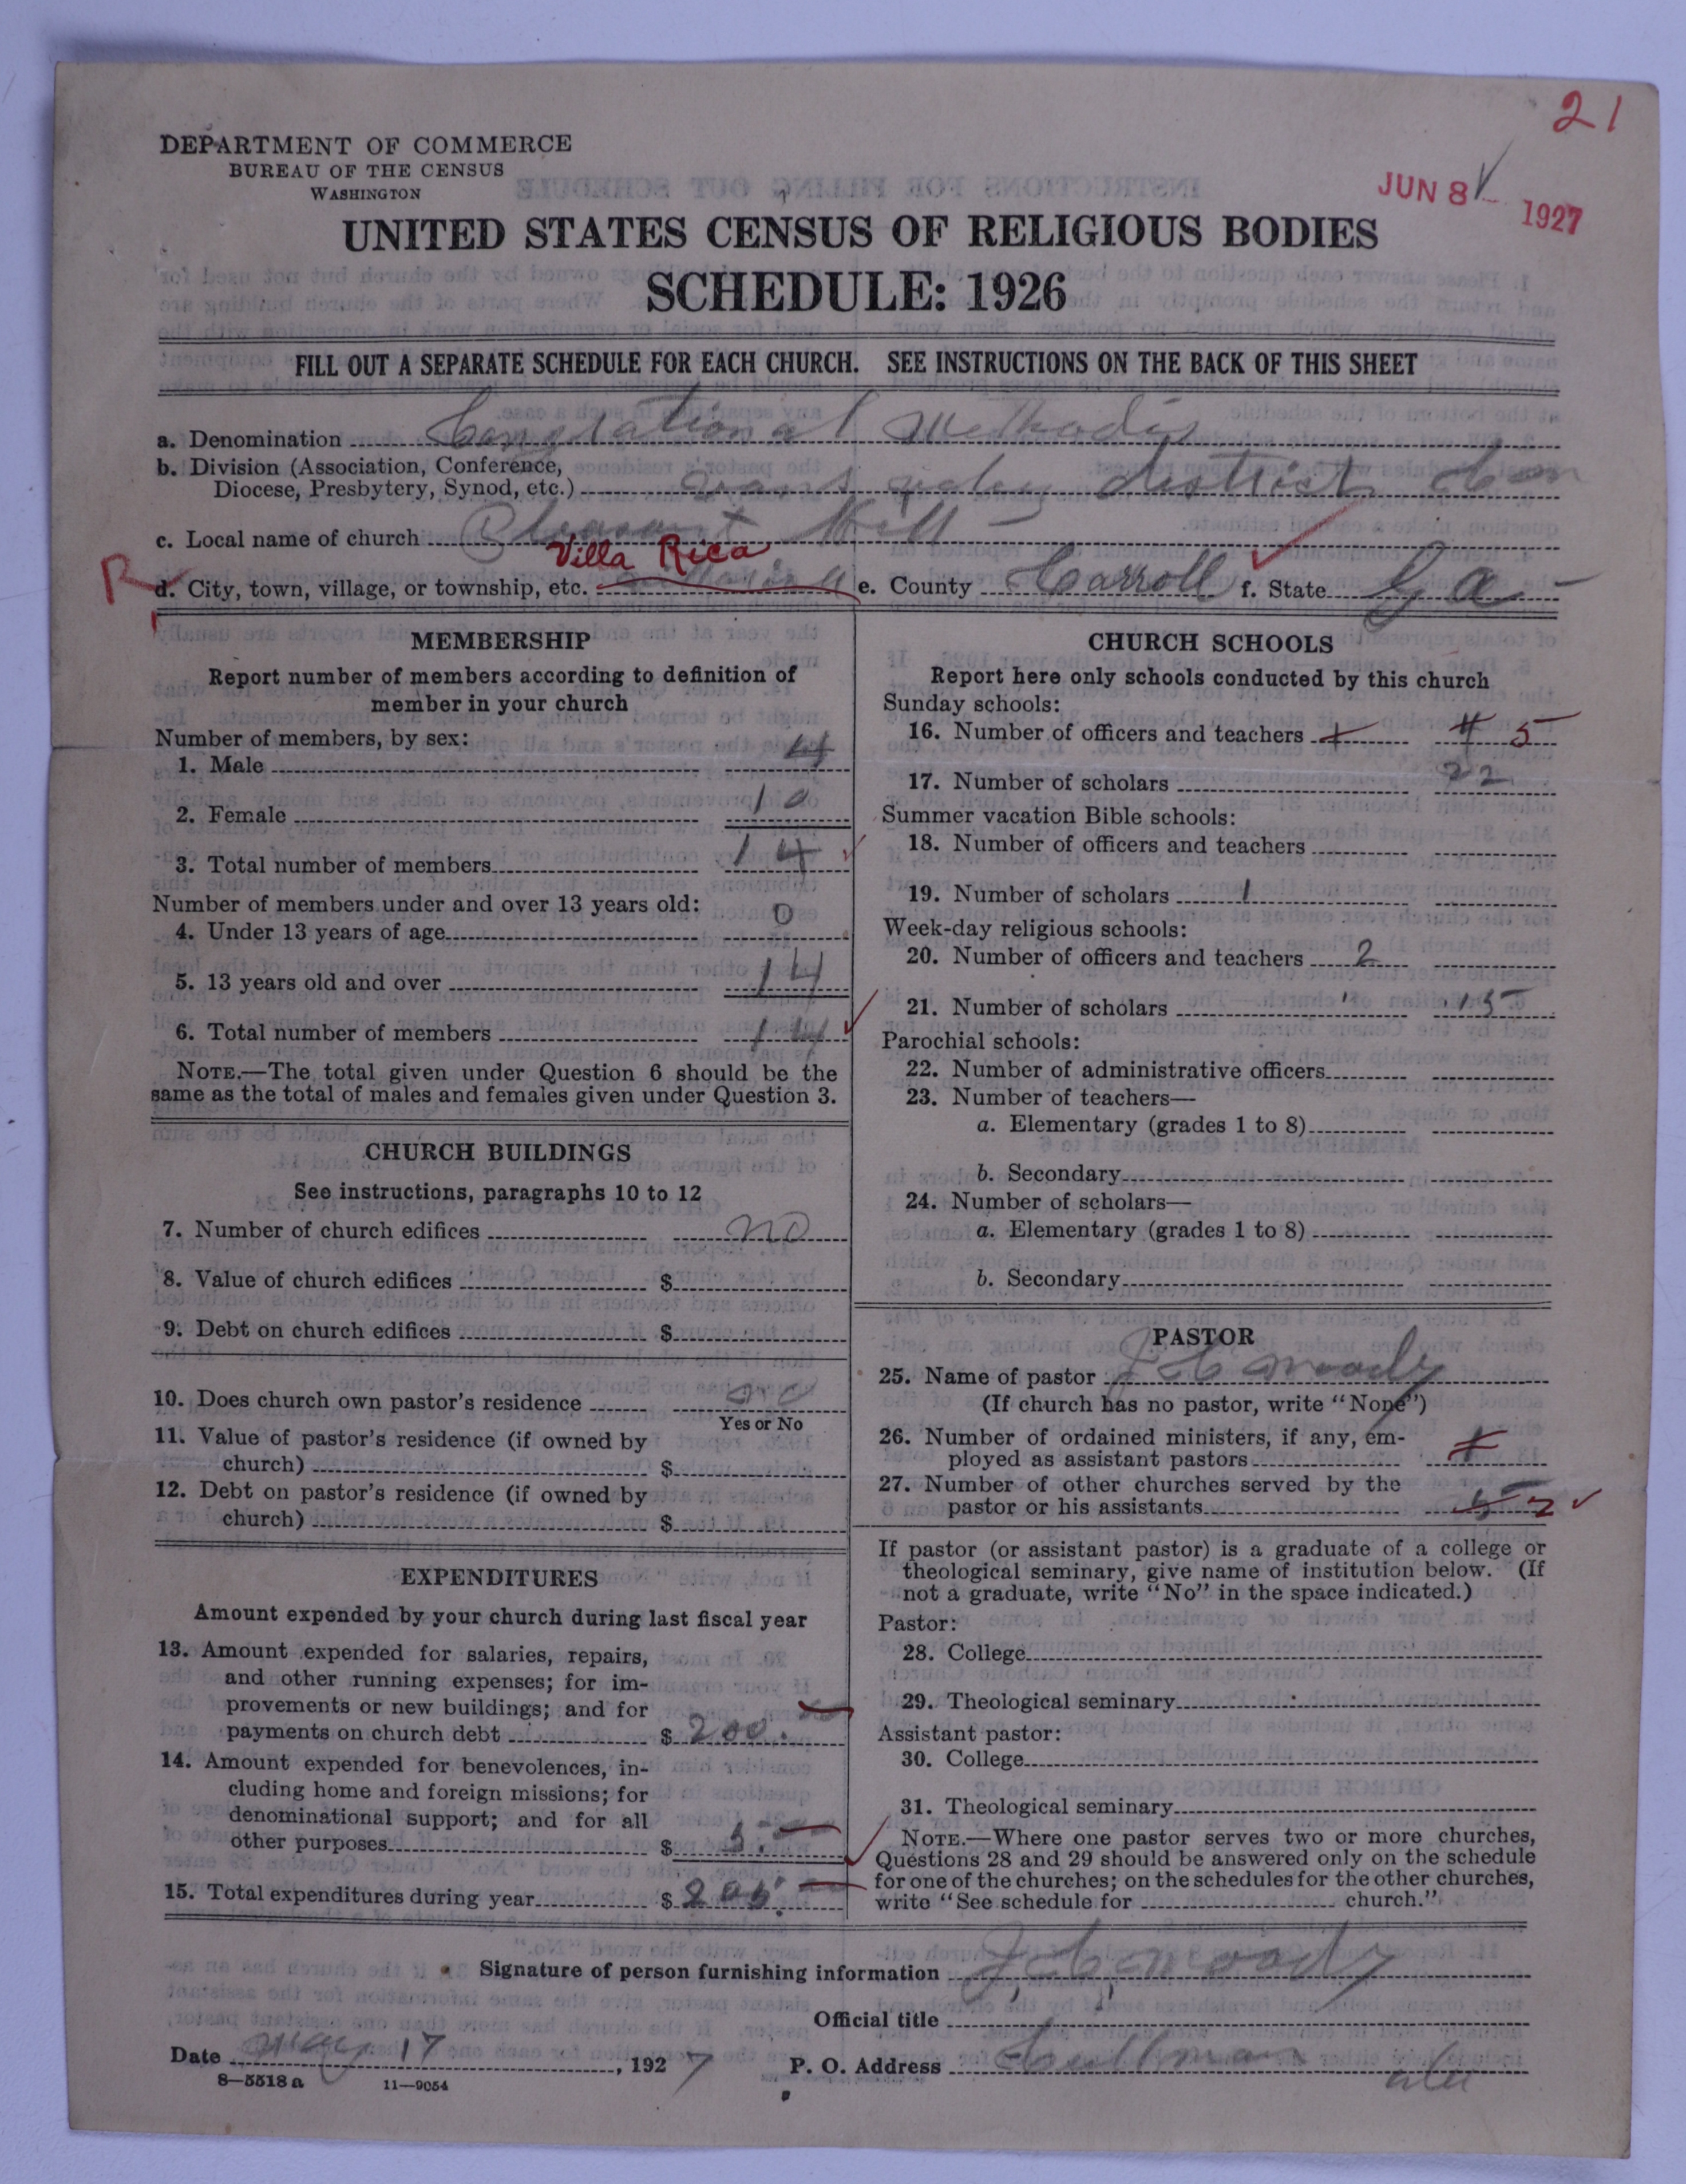 21
DEPARTMENT OF COMMERCE
BUREAU OF THE CENSUS
WASHINGTON
JUN 8 1927
UNITED STATES CENSUS OF RELIGIOUS BODIES
SCHEDULE: 1926
FILL OUT A SEPARATE SCHEDULE FOR EACH CHURCH. SEE INSTRUCTIONS ON THE BACK OF THIS SHEET
a. Denomination Methodis
b. Division (Association, Conference,
Diocese, Presbytery, Synod, etc.) district
c. Local name of church Pleasant Hill
Villa Rica
R d. City, town, village, or township, etc. e. County Carroll f. State Ga
MEMBERSHIP
Report number of members according to definition of
member in your church
Number of members, by sex:
1. Male 4
2. Female 10
3. Total number of members 14
Number of members under and over 13 years old:
4. Under 13 years of age 0
5. 13 years old and over 14
6. Total number of members 14
NOTE.—The total given under Question 6 should be the
same as the total of males and females given under Question 3.
CHURCH BUILDINGS
See instructions, paragraphs 10 to 12
7. Number of church edifices no
8. Value of church edifices $
9. Debt on church edifices $
10. Does church own pastor's residence no
Yes or No
11. Value of pastor's residence (if owned by
church) $
12. Debt on pastor's residence (if owned by
church) $
EXPENDITURES
Amount expended by your church during last fiscal year
13. Amount expended for salaries, repairs,
and other running expenses; for im-
provements or new buildings; and for
payments on church debt $ 200.
14. Amount expended for benevolences, in-
cluding home and foreign missions; for
denominational support; and for all
other purposes $ 5.
15. Total expenditures during year $ 205.
CHURCH SCHOOLS
Report here only schools conducted by this church
Sunday schools:
16. Number of officers and teachers 5
17. Number of scholars 22
Summer vacation Bible schools:
18. Number of officers and teachers
19. Number of scholars 1
Week-day religious schools:
20. Number of officers and teachers 2
21. Number of scholars 15
Parochial schools:
22. Number of administrative officers
23. Number of teachers—
a. Elementary (grades 1 to 8)
b. Secondary
24. Number of scholars—
a. Elementary (grades 1 to 8)
b. Secondary
PASTOR
25. Name of pastor J C Moody
(If church has no pastor, write "None")
26. Number of ordained ministers, if any, em-
ployed as assistant pastors
27. Number of other churches served by the
pastor or his assistants 5 2
If pastor (or assistant pastor) is a graduate of a college or
theological seminary, give name of institution below. (If
not a graduate, write "No" in the space indicated.)
Pastor:
28. College
29. Theological seminary
Assistant pastor:
30. College
31. Theological seminary
NOTE.—Where one pastor serves two or more churches,
Questions 28 and 29 should be answered only on the schedule
for one of the churches; on the schedules for the other churches,
write "See schedule for church."
Signature of person furnishing information J. C. Moody
Official title
Date May 17, 1927 P. O. Address Cullman
Ala
8—5518 a 11—9054